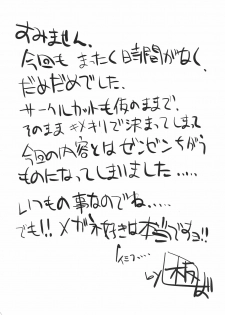 すみません。
今回も またく時間がなく、
だめだめでした。
サークルカットも仮のままで、
そのまま 〆キリで決まってしまって
今回の内容とはゼンゼンちがう
ものになってしまいました.....
いつもの事なのでね.....
でも!!メガネ好きは本当ですョ!!
by